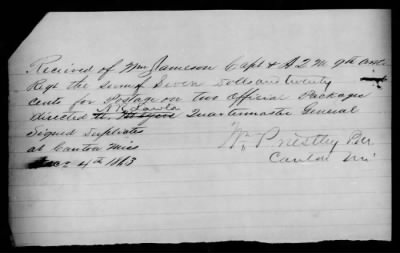 Recieved of Wm Jameson Capt & A Q M 9th
Regt the sum of Seven dolls and twenty
cents for Postage on two Official Packages
directed Quartermaster General
Signed Duplicates
at Canton Miss
4th 1863
Wm Priestley P M
Canton Mi